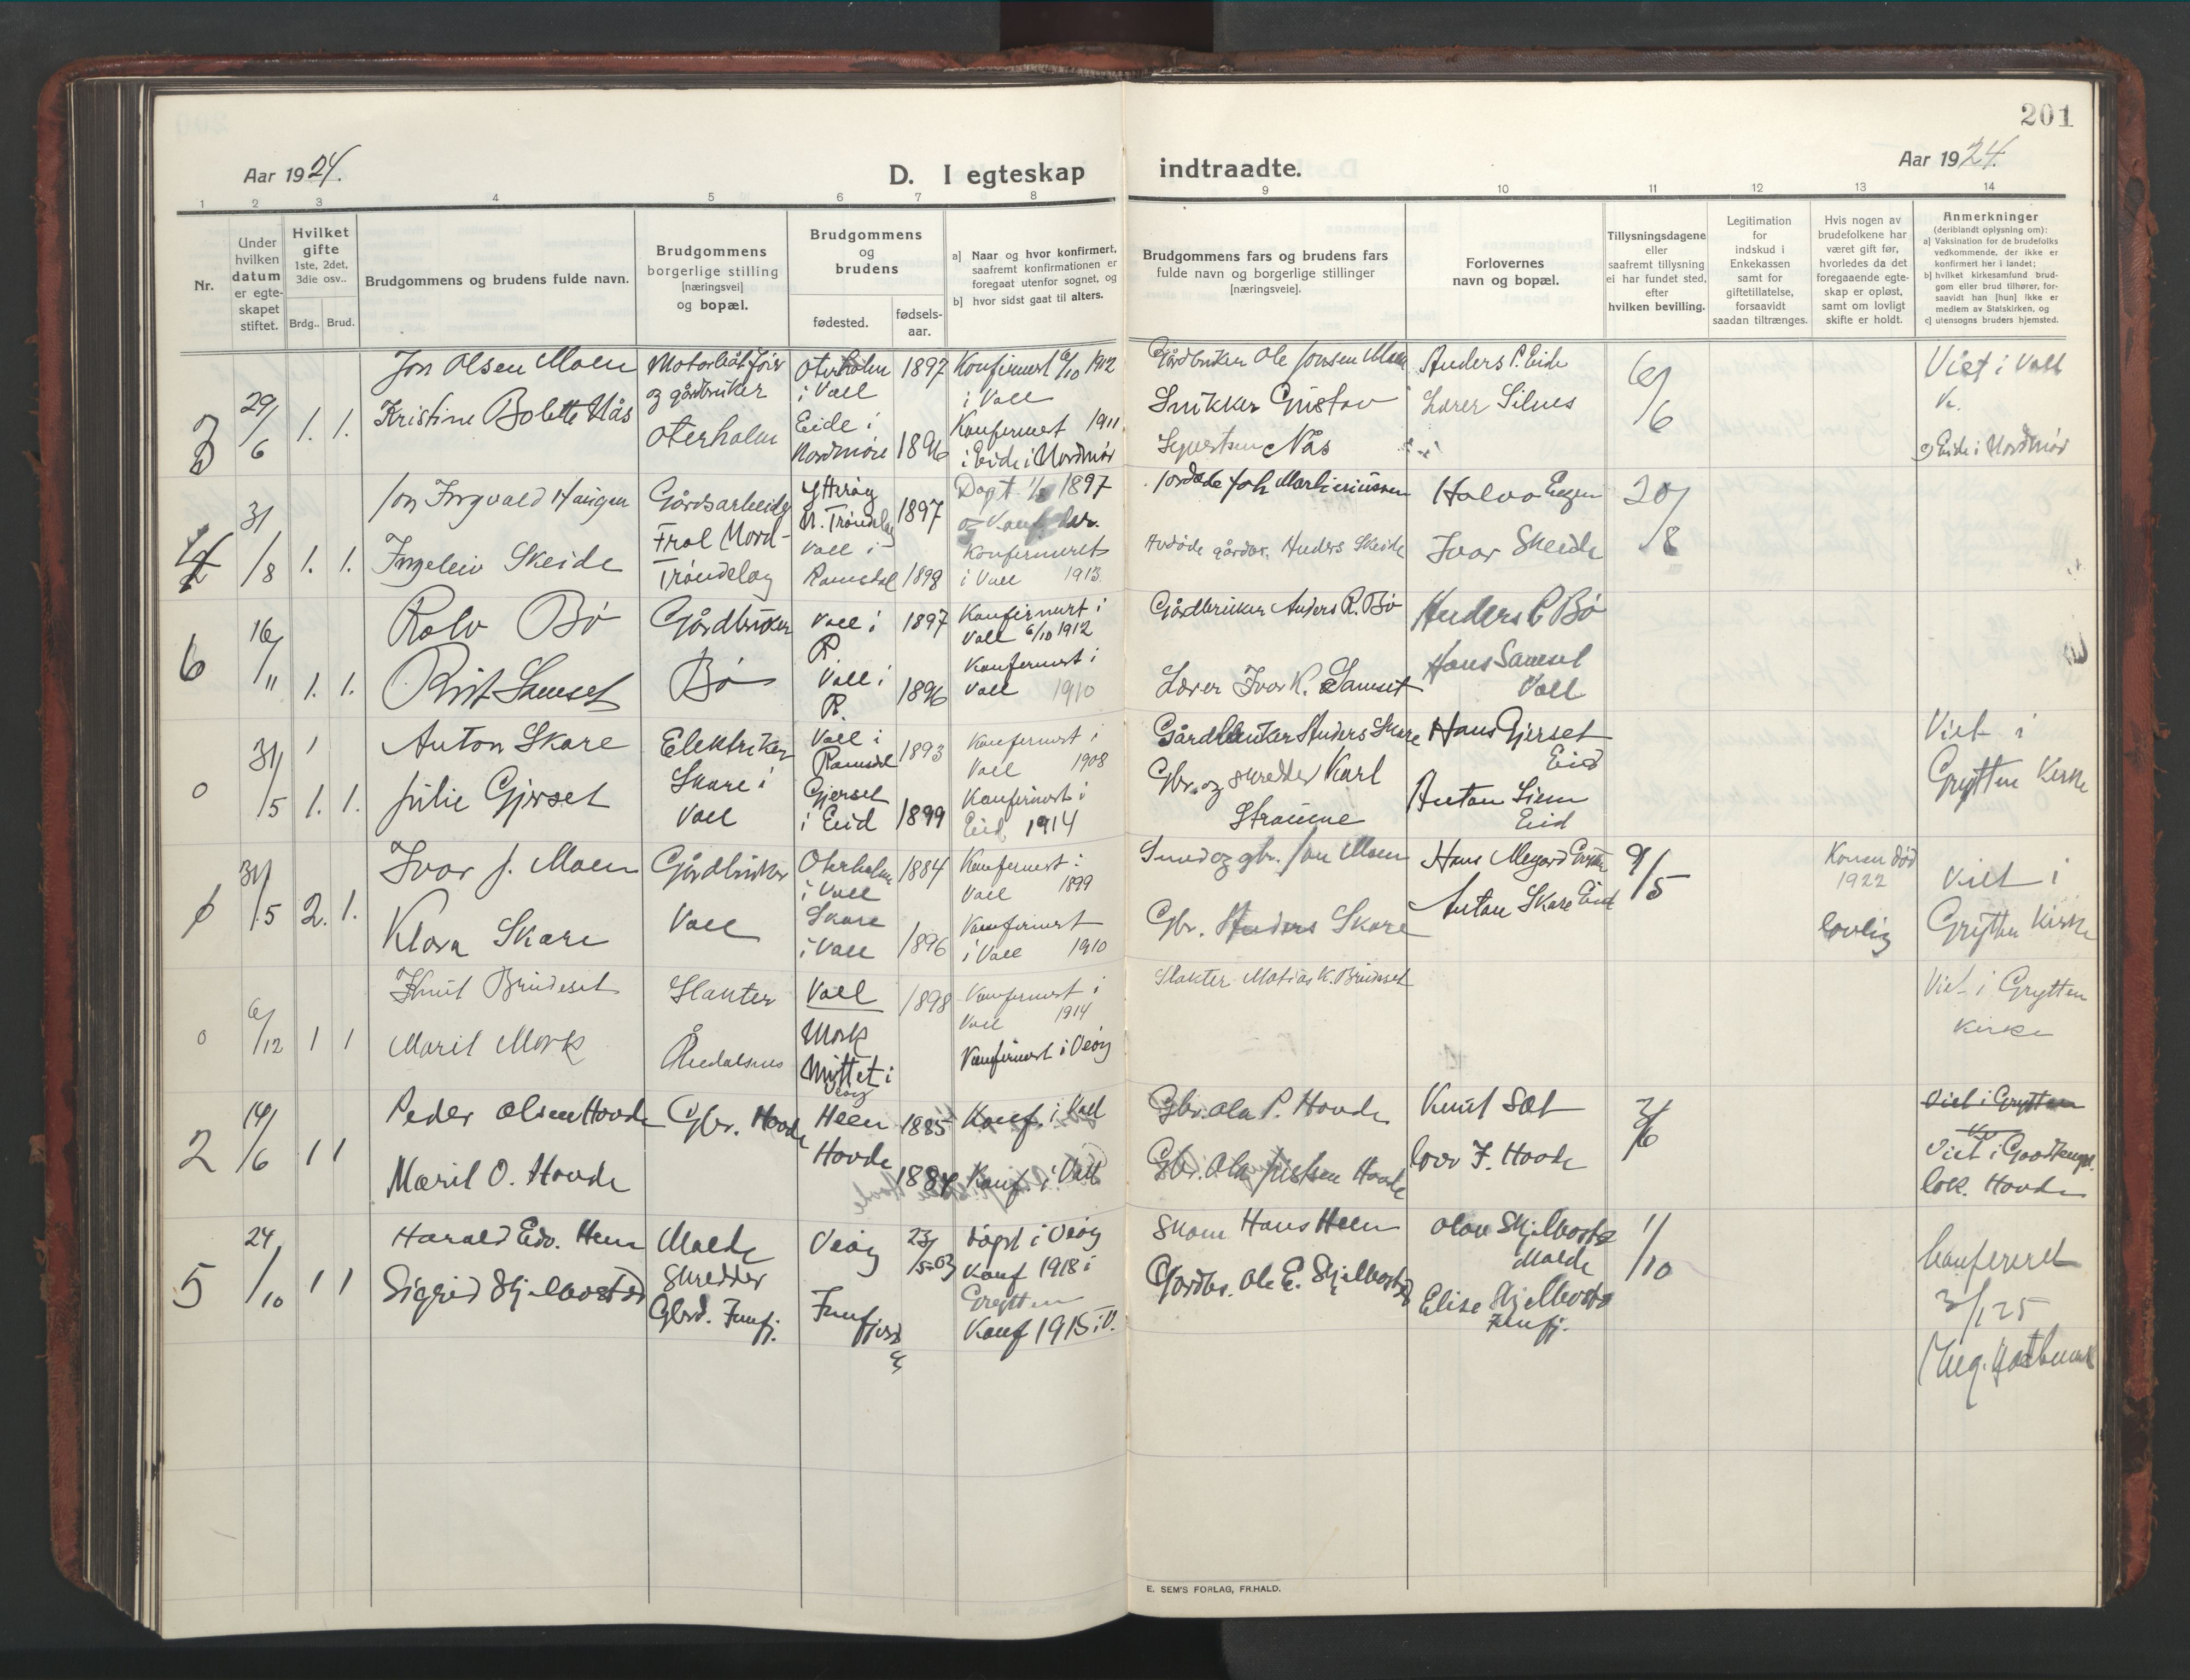 201
Aar 1924.
D. I egteskap indtraadte.
Aar 1924.
1 2 3 4 5 6 7 8 9 10 11 12 13 14
Nr.
Under hvilken datum er egte-skapet stiftet.
Hvilket gifte 1ste, 2det, 3die osv..
Brdg.. Brud.
Brudgommens og brudens fulde navn.
Brudgommens borgerlige stilling [næringsvei] og bopæl.
Brudgommens og brudens
fødested. fødsels-aar.
a] Naar og hvor konfirmert, saafremt konfirmationen er foregaat utenfor sognet, og
b] hvor sidst gaat til alters.
Brudgommens fars og brudens fars fulde navn og borgerlige stillinger [næringsveie].
Forlovernes navn og bopæl.
Tillysningsdagene eller saafremt tillysning ei har fundet sted, efter hvilken bevilling.
Legitimation for indskud i Enkekassen samt for giftetillatelse, forsaavidt saadan tiltrænges.
Hvis nogen av brudefolkene har været gift før, hvorledes da det foregaaende egte-skap er opløst, samt om lovligt skifte er holdt.
Anmerkninger (deriblandt oplysning om):
a] Vaksination for de brudefolks vedkommende, der ikke er konfirmert her i landet;
b] hvilket kirkesamfund brud-gom eller brud tilhører, for-saavidt han [hun] ikke er medlem av Statskirken, og
c] utensogns bruders hjemsted.
3
29/6 1. 1.
Jon Olsen Moen
Kristine Bolette Nås
Motorbåtfører
og gårdbruker
Oterholm
Oterholm 1897
i Voll
Eide i
Nordmøre 1896
Konfirmert 6/10 1912
i Voll
Konfermert 1911.
i Eide i Nordmør
Gårdbruker Ole Jonsen Moen
Snikker Gustav
Sypertsen Nås
Anders P. Eide
Lærer Silnes
6/6
Viet i Voll
K.
c) Eide i Nordmør
4
31/8 1. 1.
Jon Ingvald Haugen
Ingeleiv Skeide
Gårdsarbeider
Frol Nord-
Trøndelag
Ytterøy
N. Trøndelag 1897
Voll i
Romsdal 1898
Døpt 1897
og Konf. der.
Konfermeret
i Voll 1913.
Halvo Eggen
Avdøde gårdbr. Anders Skeide
Ivar Skeide
20/8
6
16/11 1. 1.
Rolv Bø
Brit Samset
Gårdbruker
Bø
Voll i 1897
R
Voll i
R. 1896
Konfirmert i
Voll 6/10 1912
Konfermert i
Voll 1910
Gårdbruker Anders R. Bø
Lærer Ivar K. Samset
Anders P Bø
Hans Samset
Voll
0
31/5 1 1. 1.
Anton Skare
Julie Gjerset
Elektriker
Skare i
Voll
Voll i
Romsdal 1893
Gjerset
i Eid 1899
Konfermert i
Voll 1908
Konfermert i
Eid 1914
Gårdbruker Anders Skare
Gbr. og skredder Karl
Straume
Hans Gjerset
Eid
Anton Siem
Eid
Viet i
Grytten Kirke
31/5 2. 1.
Ivar J. Moen
Klara Skare
Gårdbruker
Voll
Oterholm 1884
i Voll
Skare
i Voll 1896
Konfermert i
Voll 1899
Konfermert
i Voll 1910
Smed og gbr. Jon Moen
Gbr. Anders Skare
Hans Øvergard
Anton Skare Eid
9/5
Konen død
1922
lovlig
Viet i
Grytten Kirke
0
6/12 1 1
Knut Brudeset
Marit Mork
Slakter
Åndalsnes
Voll 1898
Mork
Mittet i
Veøy
Konfermert i
Voll 1914
Konfermert i Veøy
Slakter Matias K. Brudeset
Viet i Grytten
Kirke
2
14/6 1 1
Peder Olsen Hovde
Marit O. Hovde
Gbr. Hovde
Heen 1885
Hovde 1884
Konf. i Voll
Konf. i Voll
Gbr. Ola P. Hovde
Gbr. Ola Hovde
Knut Sæt
Hovde
3/6
Viet i Grytten
Viet i Goodtempl.
lok. Hovde
5
24/10 1 1
Harald Edv. Heen
Sigrid Skjelbostad
Molde
Skredder
Gbrd. Innfj.
Veøy 23/5-03
Innfjord
Døpt i Veøy
Konf 1918 i
Grytten
Konf 1915 i V.
Skom Hans Heen
Gårdbr. Ole E. Skjelbostad
Olav Skjelbostad
Molde
Elise Skjelbostad
Innfj.
1/10
Konfereret
3/1 25
E. SEM'S FORLAG, FR.HALD.